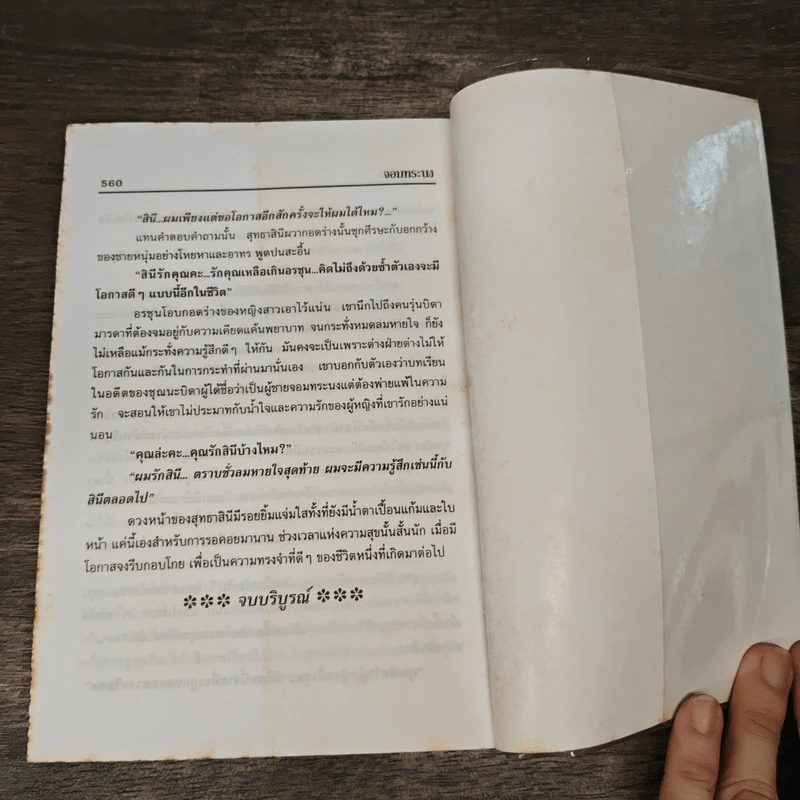 560 จอมทระนง
“สินี...ผมเพียงแต่ขอโอกาสอีกสักครั้งจะให้ผมได้ไหม?...”
แทนคำตอบคำถามนั้น สุทธาสินีผวากอดร่างนั้นซุกศีรษะกับอกกว้าง
ของชายหนุ่มอย่างโหยหาและอาทร พูดปนสะอื้น
“สินีรักคุณคะ...รักคุณเหลือเกินอรชุน...คิดไม่ถึงด้วยซ้ำตัวเองจะมี
โอกาสดีๆ แบบนี้อีกในชีวิต”
อรชุนโอบกอดร่างของหญิงสาวเอาไว้แน่น เขานึกไปถึงคนรุ่นบิดา
มารดาที่ต้องจมอยู่กับความเคียดแค้นพยาบาท จนกระทั่งหมดลมหายใจ ก็ยัง
ไม่เหลือแม้กระทั่งความรู้สึกดีๆ ให้กัน มันคงจะเป็นเพราะต่างฝ่ายต่างไม่ให้
โอกาสกันและกันในการกระทำที่ผ่านมานั่นเอง เขาบอกกับตัวเองว่าบทเรียน
ในอดีตของชุณนะบิดาผู้ได้ชื่อว่าเป็นผู้ชายจอมทระนงแต่ต้องพ่ายแพ้ในความ
รัก จะสอนให้เขาไม่ประมาทกับน้ำใจและความรักของผู้หญิงที่เขารักอย่างแน่
นอน
“คุณล่ะคะ...คุณรักสินีบ้างไหม?”
“ผมรักสินี... ตราบชั่วลมหายใจสุดท้าย ผมจะมีความรู้สึกเช่นนี้กับ
สินีตลอดไป”
ดวงหน้าของสุทธาสินีมีรอยยิ้มแจ่มใสทั้งที่ยังมีน้ำตาเปื้อนแก้มและใบ
หน้า แค่นี้เองสำหรับการรอคอยมานาน ช่วงเวลาแห่งความสุขนั้นสั้นนัก เมื่อมี
โอกาสจงรีบกอบโกย เพื่อเป็นความทรงจำที่ดีๆ ของชีวิตหนึ่งที่เกิดมาต่อไป
✽✽✽ จบบริบูรณ์ ✽✽✽